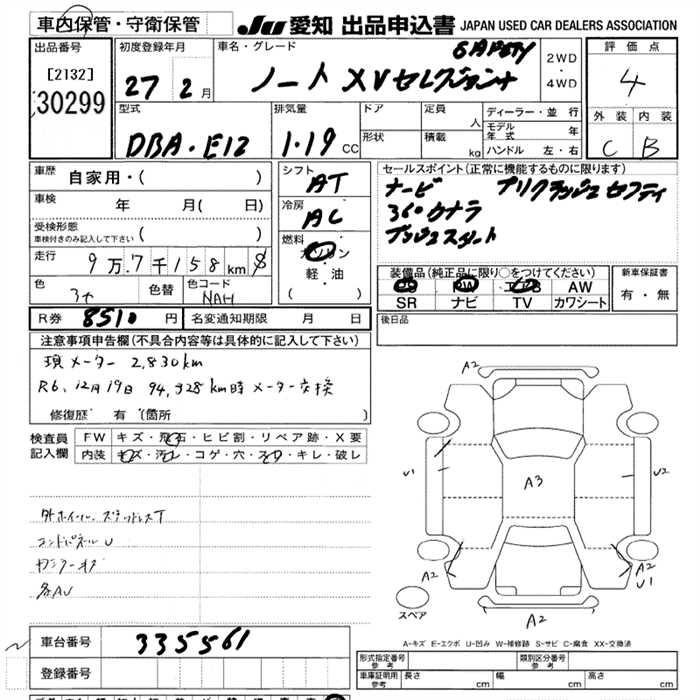 車内保管・守衛保管
JU 愛知 出品申込書 JAPAN USED CAR DEALERS ASSOCIATION
出品番号
[2132]
30299
初度登録年月
27 2月
車名・グレード
SAFETY
ノート XVセレクション+
2WD
・
4WD
評価点
4
型式
DBA・E12
排気量
1.19 CC
ドア
形状
定員 人
積載 kg
ディーラー・並行
モデル年式 年
ハンドル 左・右
外装 内装
C B
車歴 自家用・( )
車検 年 月( 日)
受検形態
車検付きのみ記入して下さい ( )
走行 9万7千158km
色 色替 色コード
NAH
シフト
AT
冷房
AC
燃料
ガソリン
軽・油
( )
セールスポイント(正常に機能するものに限ります)
ナービ プリクラッシュセフティ
360カメラ
プッシュスタート
装備品(純正品に限り○をつけてください)
PS PW エアB AW
SR ナビ TV カワシート
新車保証書
有・無
R券 8510円 名変通知期限 月 日
後日品
注意事項申告欄(不具合内容等は具体的に記入して下さい)
現メーター 2,830km
R6、12月19日 94,328km時メーター交換
修復歴 有(箇所
検査員
記入欄
FW キズ・飛石・ヒビ割・リペア跡・X要
内装 キズ・汚レ・コゲ・穴・スレ・キレ・破レ
外ホイール、スタッドレスT
各AU
A2
U1
A3
U2
A2
A2
U1
スペア
A2
A-キズ E-エクボ U-凹み W-補修跡 S-サビ C-腐食 XX-交換済
車台番号 335561
登録番号
形式指定番号
参考
類別区分番号
参考
車庫証明用
参考
長さ cm 幅 cm 高さ cm